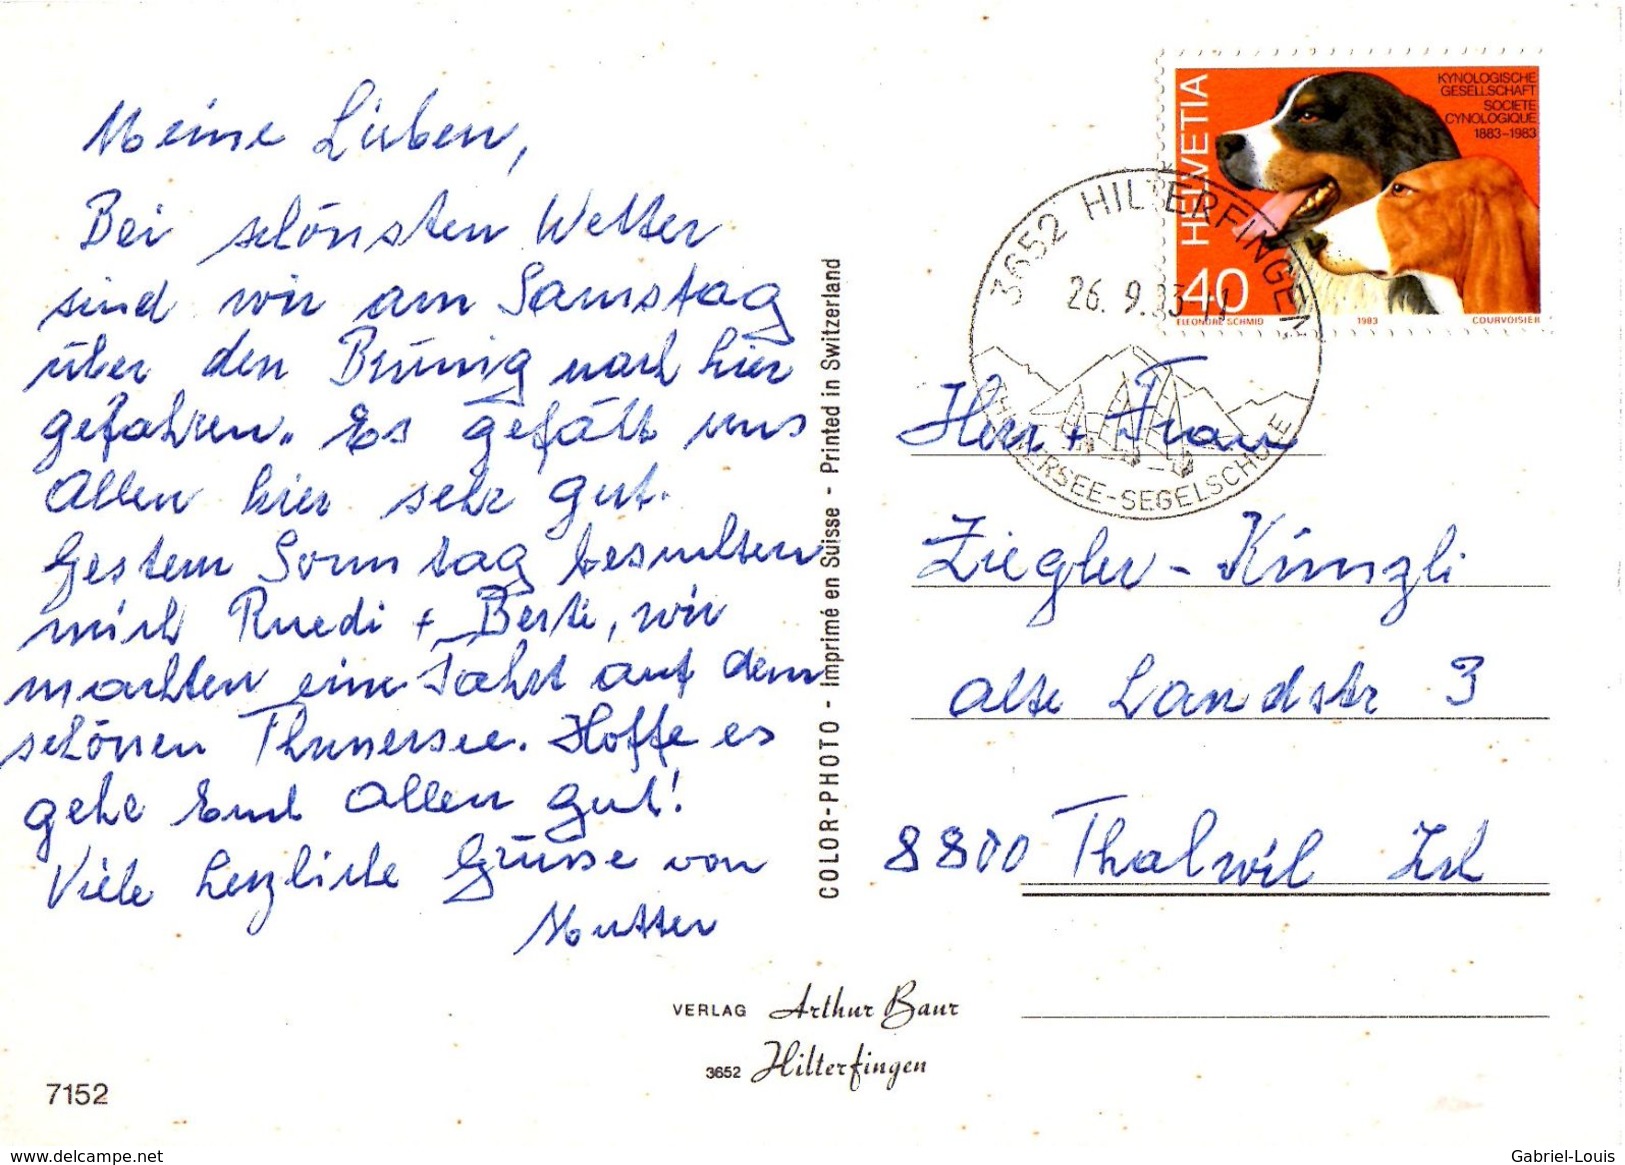 Meine Lieben,
Bei schönsten Wetter
sind wir am Samstag
über den Brünig nach hier
gefahren. Es gefällt uns
Allen hier sehr gut.
Gestern Sonntag besuchten
mich Ruedi + Berti, wir
machten eine Fahrt auf dem
schönen Thunersee. Hoffe es
gehe Euch Allen gut!
Viele herzliche Grüsse von
Mutter
COLOR-PHOTO - Imprimé en Suisse - Printed in Switzerland
HELVETIA
KYNOLOGISCHE
GESELLSCHAFT
SOCIETE
CYNOLOGIQUE
1883-1983
40
ELEONORE SCHMID 1983 COURVOISIER
3652 HILTERFINGEN
26.9.83-11
THUNERSEE-SEGELSCHULE
Herr + Frau
Ziegler - Künzli
alte Landstr 3
8800 Thalwil Zch
VERLAG Arthur Baur
3652 Hilterfingen
7152
www.delcampe.net
Gabriel-Louis